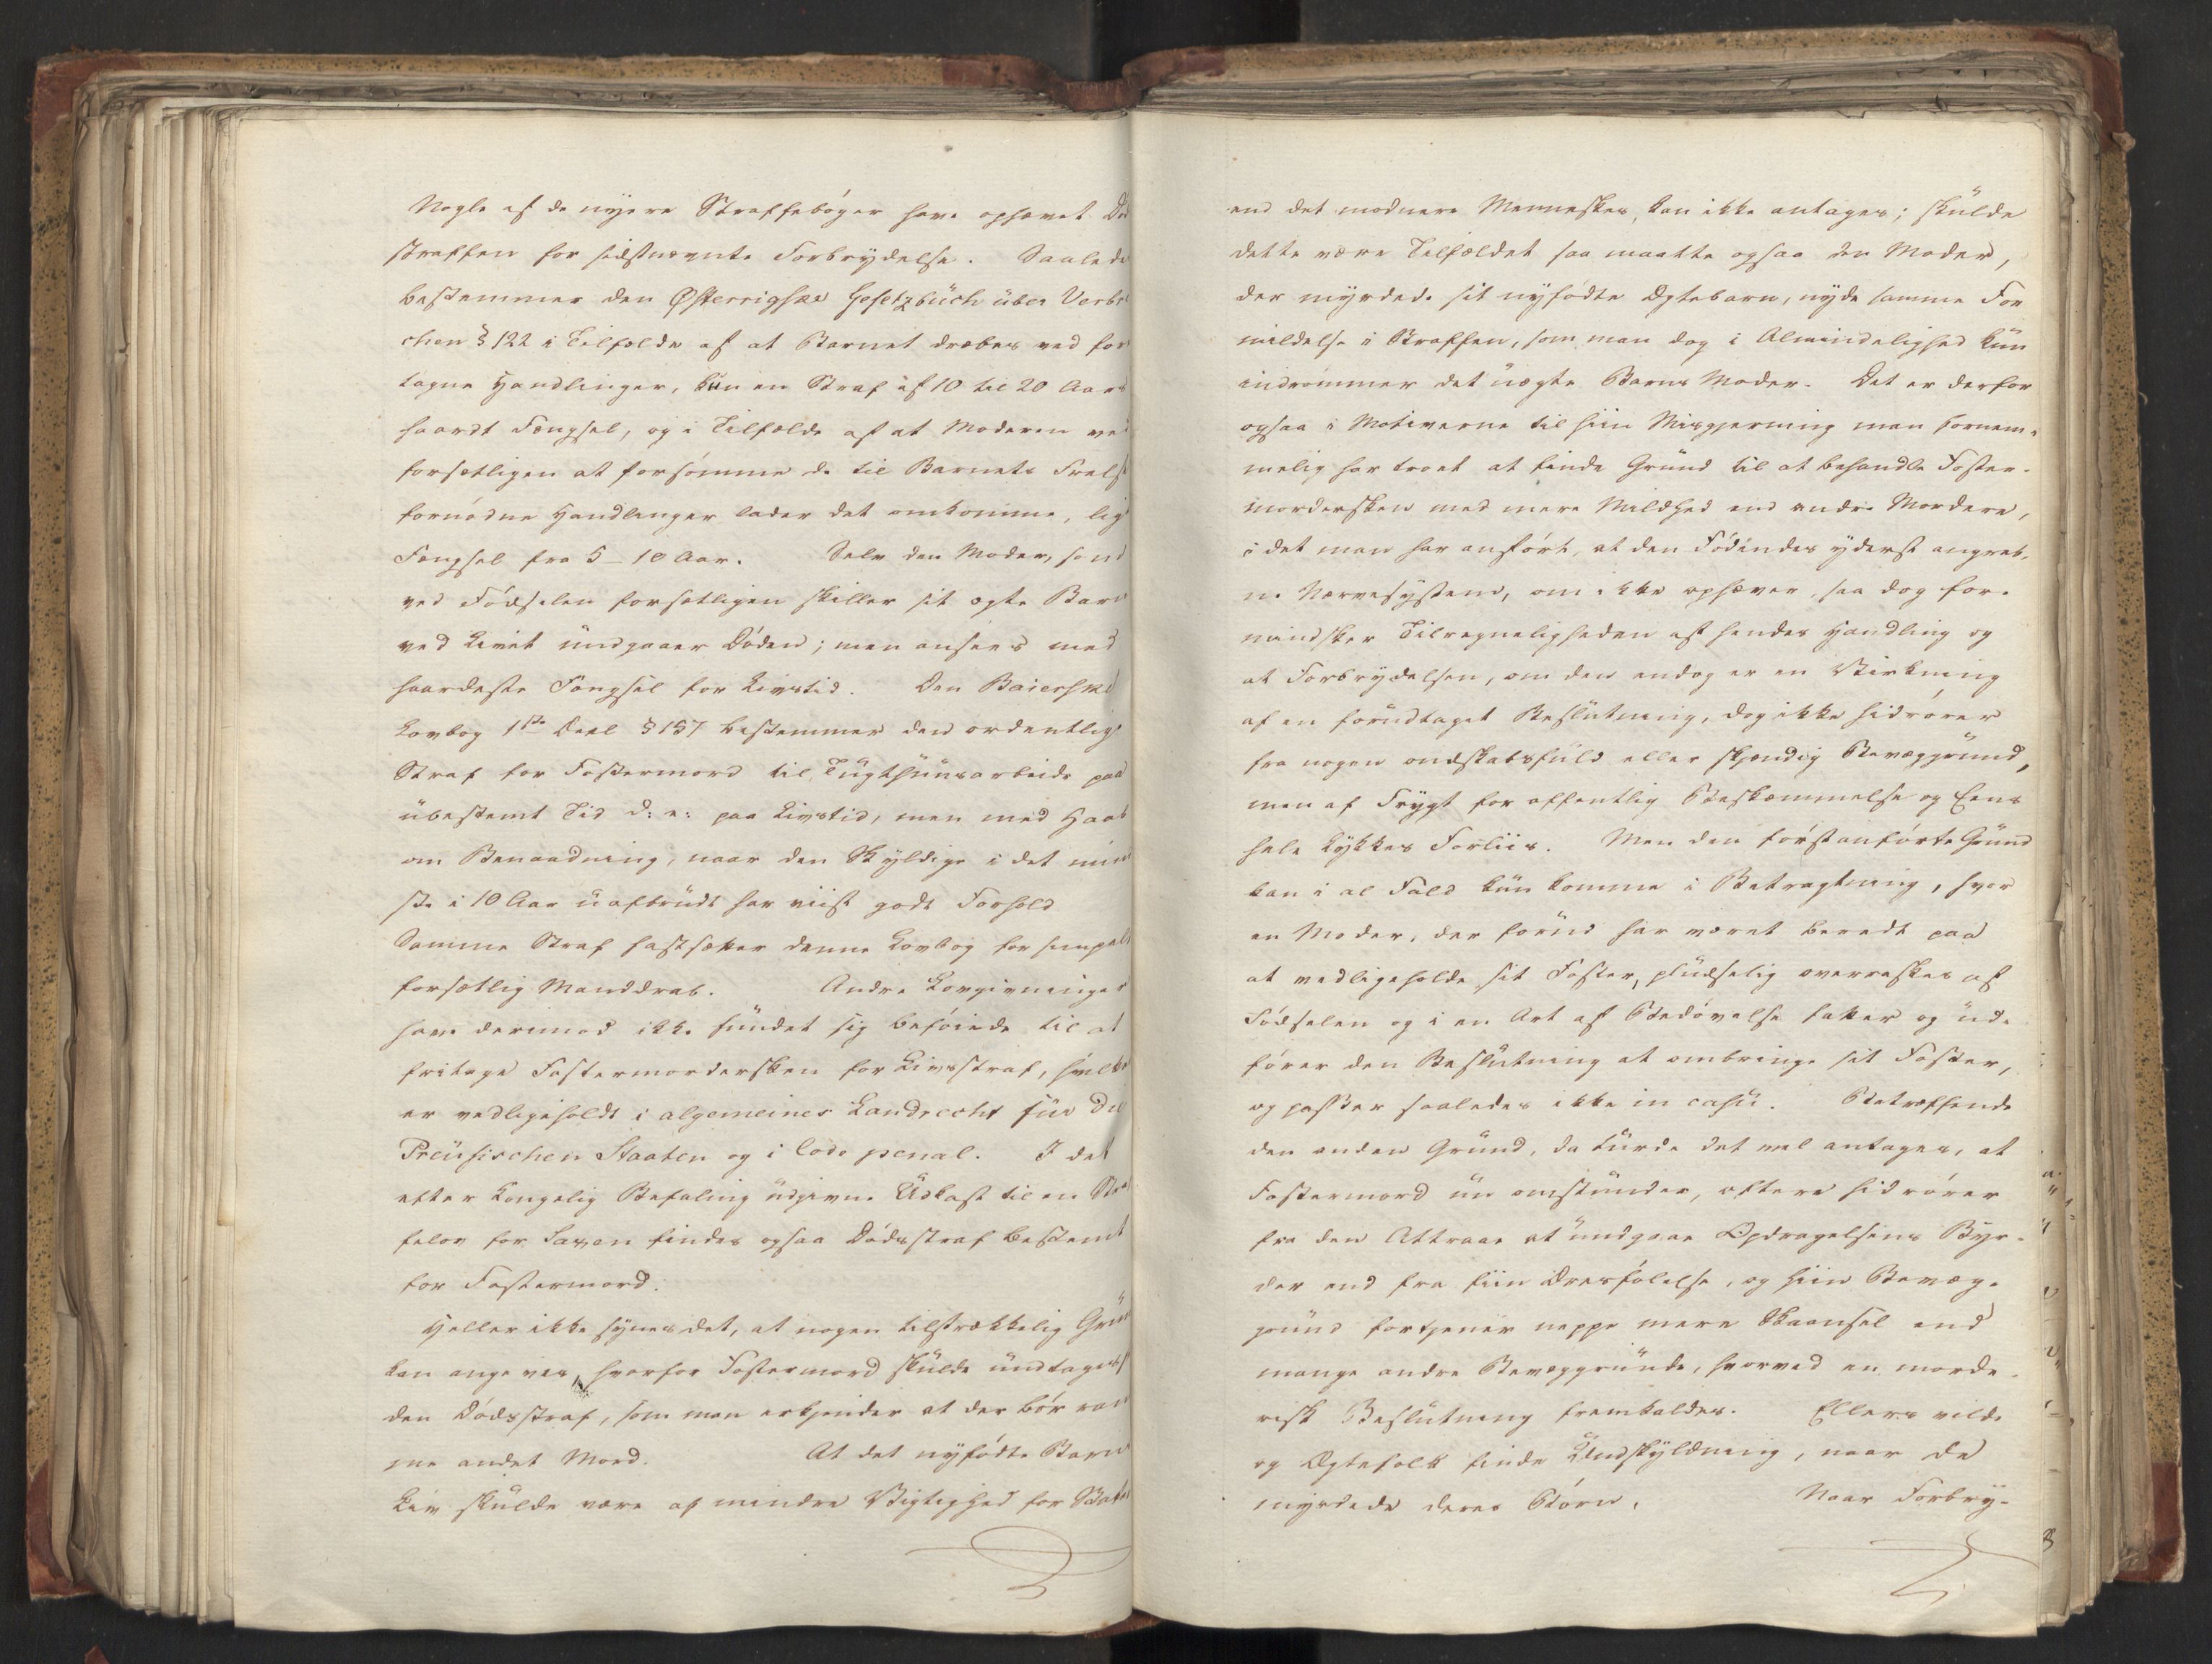 Nogle af de nyere Straffebøger have ophævet Død
straffen for sidstnævnte Forbrydelse. Saalede
bestemmer den Østerrigske Gesetzbuch über Verbre
chen § 122 i Tilfælde af at Barnet dræbes ved fore
tagne Handlinger, kun en Straf af 10 til 20 Aars
haardt Fængsel, og i Tilfælde af at Moderen ved
forsætligen at forsømme de til Barnets Frelse
fornødne Handlinger lader det omkomme, lige
Fængsel fra 5 – 10 Aar. Selv den Moder, som
ved Fødselen forsætligen skiller sit ægte Barn
ved Livet undgaaer Døden; men ansees med
haardeste Fængsel for Livstid. Den Baierske
Lovbog 1ste Deel § 157 bestemmer den ordentlige
Straf for Fostermord til Tugthuusarbeide paa
ubestemt Tid d: e: paa Livstid, men med Haab
om Benaadning, naar den Skyldige i det min
ste i 10 Aar uafbrudt har viist godt Forhold
Samme Straf fastsætter denne Lovbog for simpelt
forsætlig Manddrab. Andre Lovgivninger
have derimod ikke fundet sig beføiede til at
fritage Fostermordersken for Livsstraf, hvilken
er vedligeholdt i algemeines Landrecht für die
Preusischen Staaten og i Code penal. I det
efter Kongelig Befaling udgivne Udkast til en Stra
felov for Saxen findes ogsaa Dødsstraf bestemt
for Fostermord.
Heller ikke synes det, at nogen tilstrækkelig Grund
kan angives, hvorfor Fostermord skulde undtages f
den Dødsstraf, som man erkjender at der bør ram
me andet Mord. At det nyfødte Barns
Liv skulde være af mindre Vigtighed for Staten
end det modnere Menneskes, kan ikke antages; skulde
dette være Tilfældet saa maatte ogsaa den Moder,
der myrdede sit nyfødte Ægtebarn, nyde samme For
mildelse i Straffen, som man dog i Almindelighed kun
indrømmer det uægte Barns Moder. Det er derfor
ogsaa i Motiverne til hiin Misgjerning man fornem-
melig har troet at finde Grund til at behandle Foster-
mordersken med mere Mildhed end andre Mordere,
i det man har anført, at den Fødendes yderst angreb-
ne Nervesystem, om ikke ophæver, saa dog for-
mindsker Tilregneligheden af hendes Handling og
at Forbrydelsen, om den endog er en Virkning
af en forudtaget Beslutning, dog ikke hidrører
fra nogen ondskabsfuld eller skjændig Bevæggrund,
men af Frygt for offentlig Beskæmmelse og Eens
hele Lykkes Forliis. Men den førstanførte Grund
kan i al Fald kun komme i Betragtning, hvor
en Moder, der forud har været beredt paa
at vedligeholde sit Foster, pludselig overraskes af
Fødselen og i en Art af Bedøvelse fatter og ud-
fører den Beslutning at ombringe sit Foster,
og passer saaledes ikke in casu. Betræffende
den anden Grund, da turde det vel antages, at
Fostermord nu omstunder, oftere hidrører
fra den Attraae at undgaae Opdragelsens Byr-
der end fra fiin Æresfølelse, og hiin Bevæg-
grund fortjener neppe mere Skaansel end
mange andre Bevæggrunde, hvorved en morde-
risk Beslutning fremkaldes. Ellers vilde
og Ægtefolk finde Undskyldning, naar de
myrdede deres Børn. Naar Forbry-